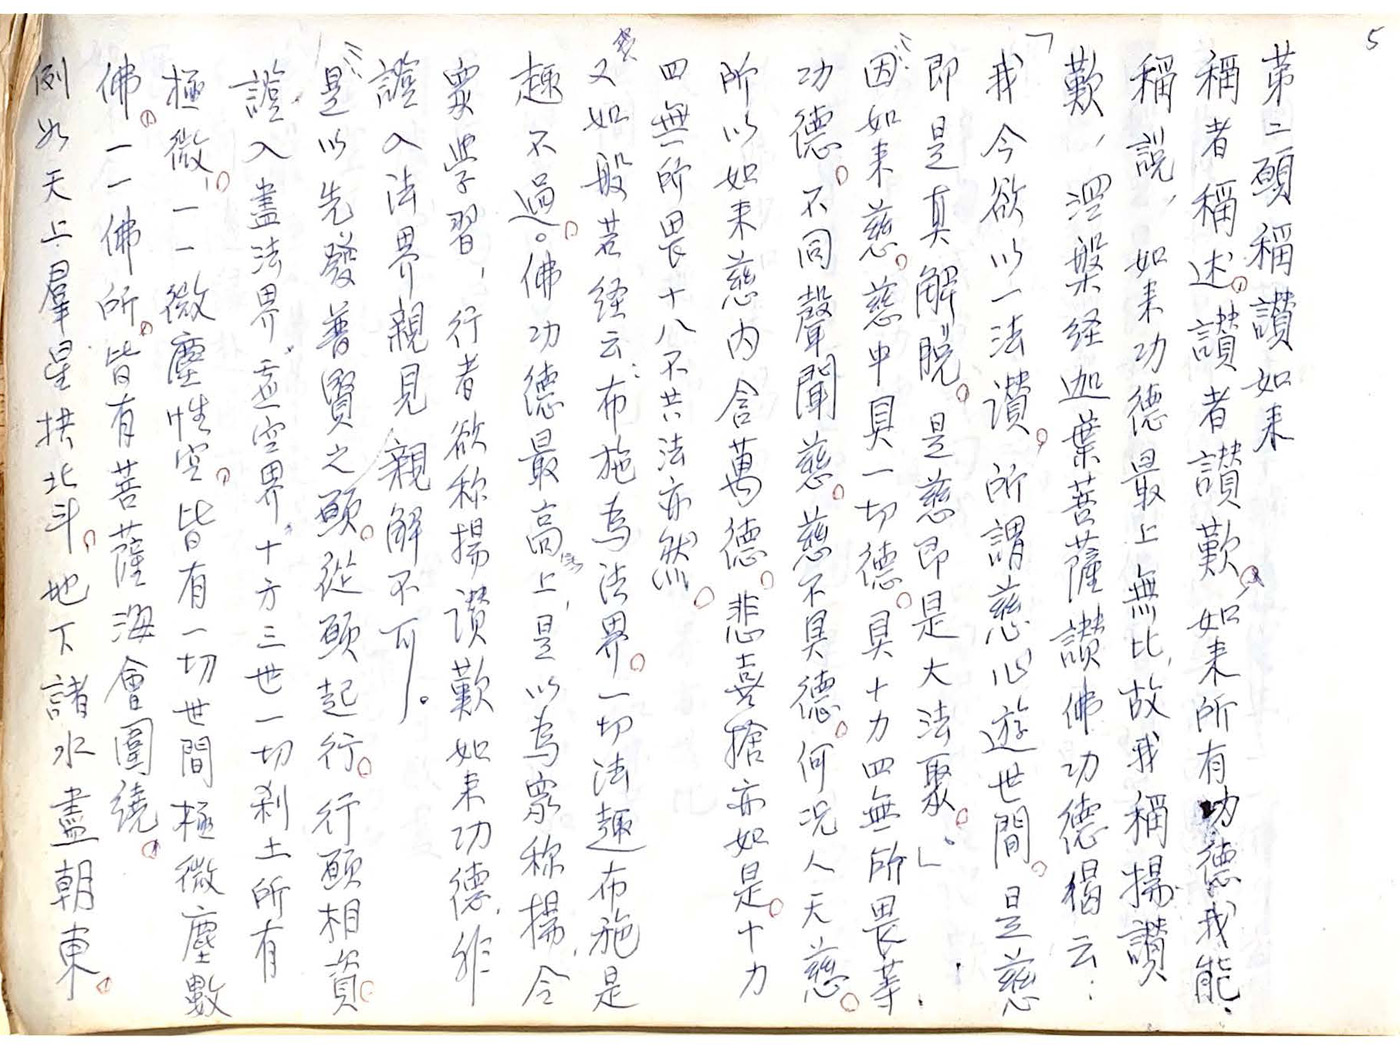 5
第二願稱讚如來
稱者稱述。讚者讚歎，如來所有功德我能
稱説，如来功德最上無比，故我稱揚讃
歎，涅槃経迦葉菩薩讃佛功德偈云：
「我今欲以一法讃。所謂慈心遊世間。是慈
即是真解脱。是慈即是大法聚。」
因如来慈。慈中具一切德。具十力四無所畏等.
功德。不同聲聞慈。慈不具德。何况人天慈。
所以如来慈内含萬德。悲喜捨亦如是。十力
四無所畏十八不共法亦然。
又如般若経云：布施為法界。一切法趣布施是
趣不過。佛功德最高上，是以為衆称揚，令
衆學習，行者欲称揚讃歎如来功德，非
證入法界親見親解不可。
是以先發普賢之願。從願起行。行願相資。
證入盡法界.虚空界.十方三世一切刹土所有
極微。一一微塵性空。皆有一切世間極微塵數
佛。一一佛所。皆有菩薩海會圍繞。
例如天上羣星拱北斗。地下諸水盡朝東。